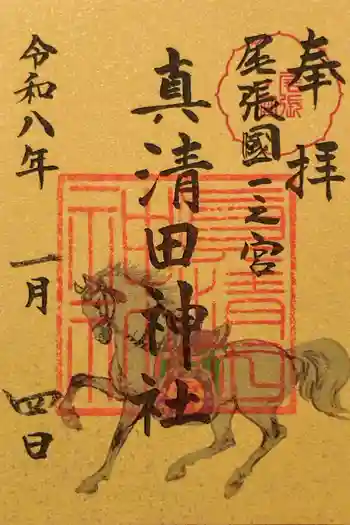 奉拝
尾張國一之宮
真清田神社
令和八年
一月
四日
尾張